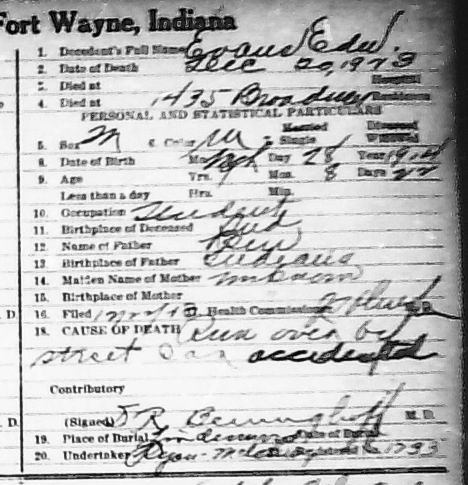 Fort Wayne, Indiana
1. Decedent's Full Name Evans Edw.
2. Date of Death Dec 20, 1923
3. Died at Hospital
4. Died at 1435 Broadway Residence
PERSONAL AND STATISTICAL PARTICULARS
5. Sex M 6. Color W 7. Single Married Widowed Divorced
8. Date of Birth Mo. Mch Day 28 Year
9. Age Yrs. Mos. 8 Days 22
Less than a day Hrs. Min.
10. Occupation Student
11. Birthplace of Deceased Ind
12. Name of Father
13. Birthplace of Father Indiana
14. Maiden Name of Mother unknown
15. Birthplace of Mother
D. 16. Filed Health Commissioner M.D.
18. CAUSE OF DEATH Run over by
street car accidental
Contributory
D. (Signed) M. D.
19. Place of Burial Lindenwood Date of Burial
20. Undertaker